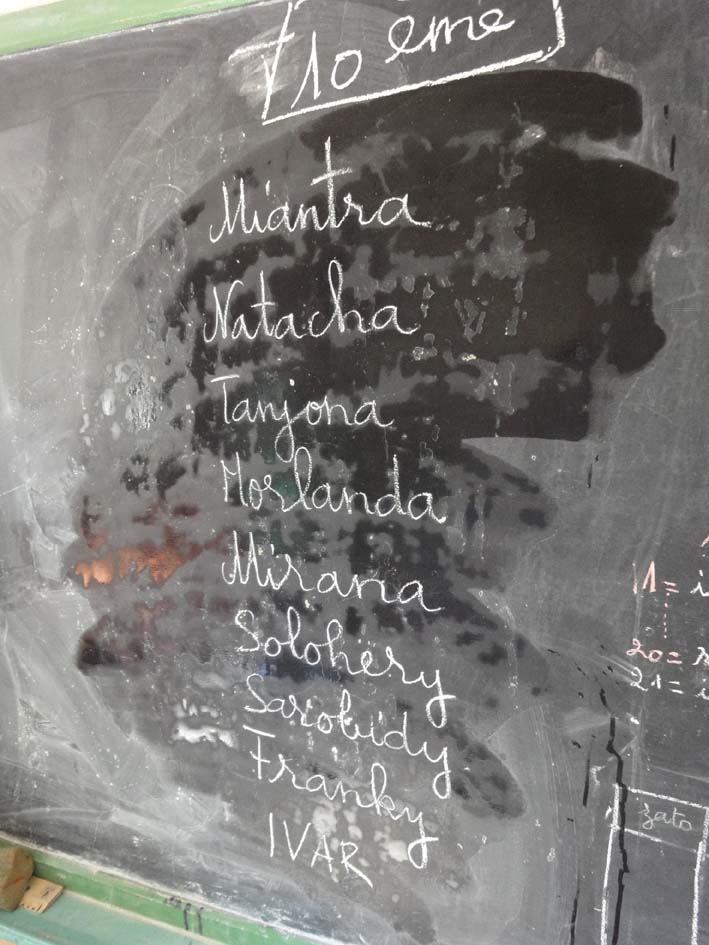 10 eme
Miantra
Natacha
Tanjona
Morlanda
Mirana
Solohery
Sarobidy
Franky
IVAR
11 = i
20 =
21 = i
zato